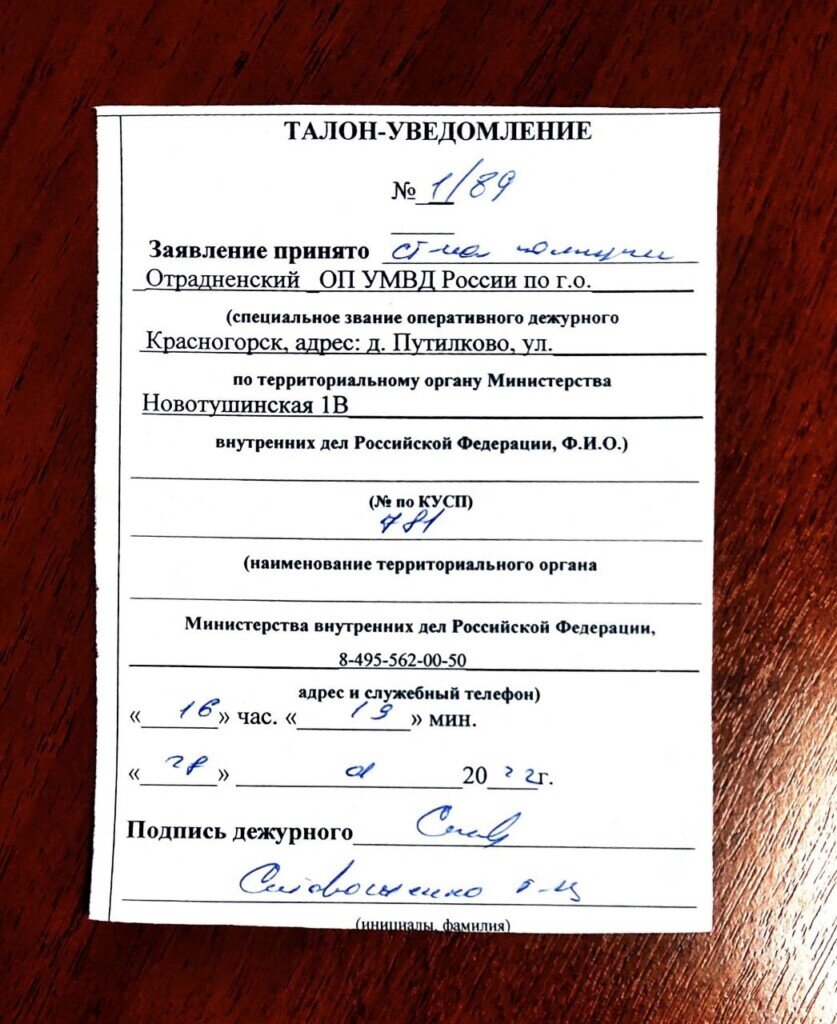 ТАЛОН-УВЕДОМЛЕНИЕ
№ 1/89
Заявление принято ст-ная полиции
Отрадненский ОП УМВД России по г.о.
(специальное звание оперативного дежурного
Красногорск, адрес: д. Путилково, ул.
по территориальному органу Министерства
Новотушинская 1В
внутренних дел Российской Федерации, Ф.И.О.)
(№ по КУСП)
781
(наименование территориального органа
Министерства внутренних дел Российской Федерации,
8-495-562-00-50
адрес и служебный телефон)
«16» час. «19» мин.
«28» 2022г.
Подпись дежурного
(инициалы, фамилия)